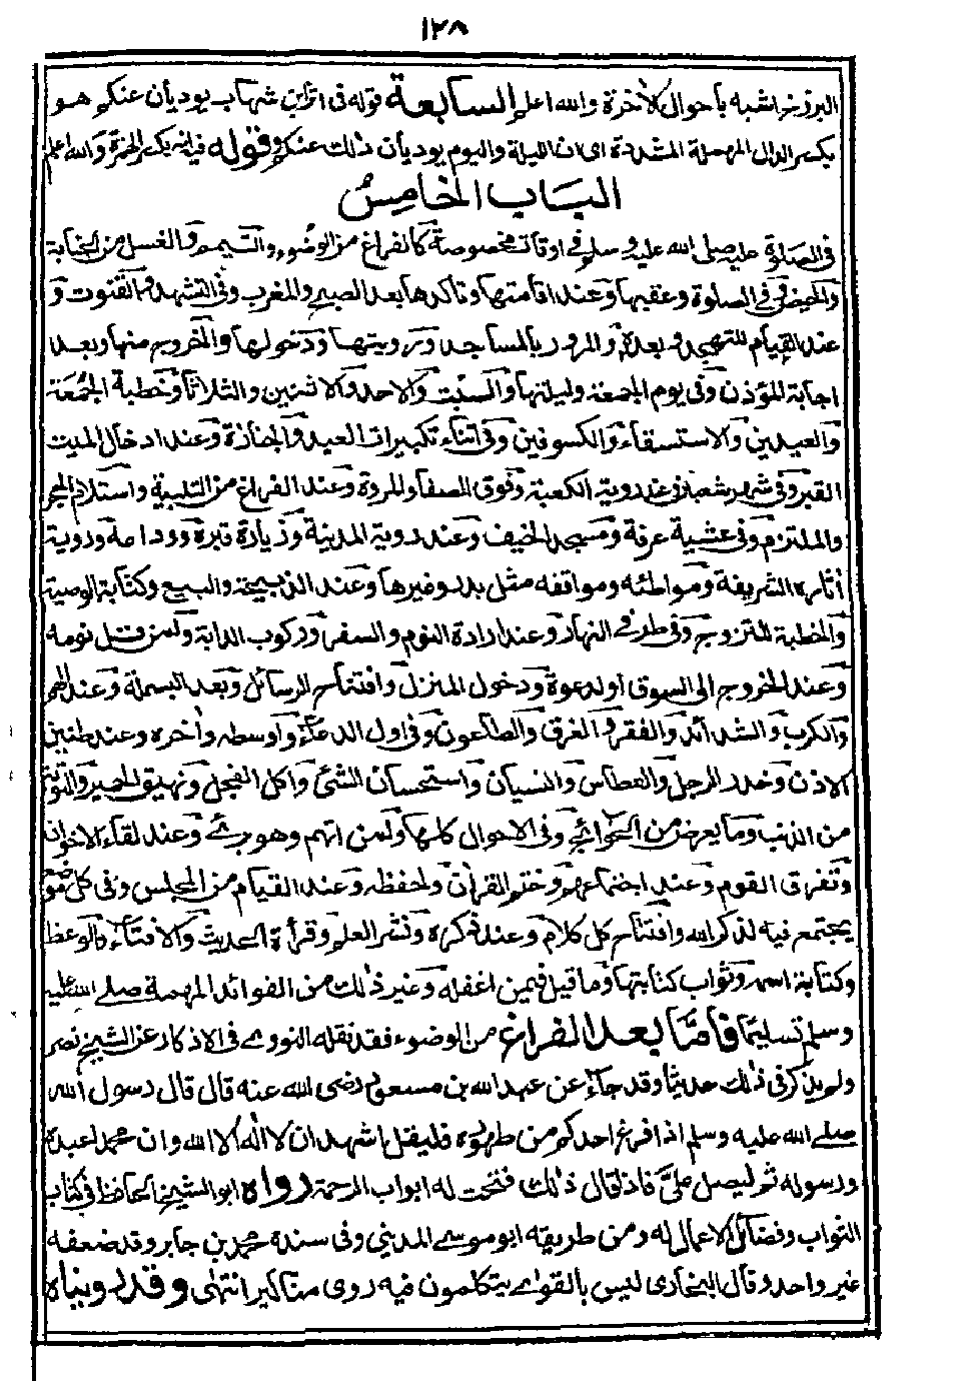 ١٢٨
البرزخ اشبه باحوال الآخرة والله اعلم السابعة قوله فى اثر ابن شهاب يوديان عنكم هو
بكسر الدال المهملة المشددة اى ان الليلة واليوم يوديان ذلك عنكم وقوله فيه انه بكسر الهمزة والله اعلم
الباب الخامس
فى الصلوة عليه صلى الله عليه وسلم فى اوقات مخصوصة كالفراغ من الوضوء والتيمم والغسل من الجنابة
والحيض وفى الصلوة وعقيبها وعند اقامتها وتاكدها بعد الصبح والمغرب وفى التشهد والقنوت و
عند القيام للتهجد وبعده والمرور بالمساجد ورويتها ودخولها والخروج منها وبعد
اجابة المؤذن وفى يوم الجمعة وليلتها والسبت والاحد والاثنين والثلاثا وخطبة الجمعة
والعيدين والاستسقاء والكسوفين وفى اثناء تكبيرات العيد والجنازة وعند ادخال الميت
القبر وفى شهر شعبان وعند روية الكعبة وفوق الصفا والمروة وعند الفراغ من التلبية واستلام الحجر
والملتزم وفى عشية عرفة ومسجد الخيف وعند روية المدينة وزيارة قبره ووداعه وروية
آثاره الشريفة ومواطئه ومواقفه مثل بدر وغيرها وعند الذبيحة والبيع وكتابة الوصية
والخطبة للتزويج وفى طرفى النهار وعند ارادة النوم والسفر وركوب الدابة ولمن قل نومه
وعند الخروج الى السوق او لدعوة ودخول المنزل وافتتاح الرسائل وبعد البسملة وعند الهم
والكرب والشدائد والفقر والغرق والطاعون وفى اول الدعاء واوسطه وآخره وعند طنين
الاذن وخدر الرجل والعطاس والنسيان واستحسان الشئ واكل الفجل ونهيق الحمير والتوبة
من الذنب وما يعرض من الحوائج وفى الاحوال كلها ولمن اتهم وهو برئ وعند لقاء الاخوان
وتفرق القوم وعند اجتماعهم وختم القرآن ولحفظه وعند القيام من المجلس وفى كل موضع
يجتمع فيه لذكر الله وافتتاح كل كلام وعند ذكره ونشر العلم وقرأة الحديث والافتاء والوعظ
وكتابة اسمه وثواب كتابتها وما قيل فيمن اغفله وغير ذلك من الفوائد المهمة صلى الله عليه
وسلم تسليما فاما بعد الفراغ من الوضوء فقد نقله النووى فى الاذكار عن الشيخ نصر
ولم يذكر فى ذلك حديثا وقد جاء عن عبد الله بن مسعود رضى الله عنه قال قال رسول الله
صلى الله عليه وسلم اذا فرغ احدكم من طهوره فليقل اشهد ان لا اله الا الله وان محمدا عبده
ورسوله ثم ليصل علىّ فاذا قال ذلك فتحت له ابواب الرحمة رواه ابو الشيخ الحافظ فى كتاب
الثواب وفضائل الاعمال له ومن طريقه ابو موسى المدينى وفى سنده محمد بن جابر وقد ضعفه
غير واحد وقال البخارى ليس بالقوى يتكلمون فيه روى مناكير انتهى وقد رويناه